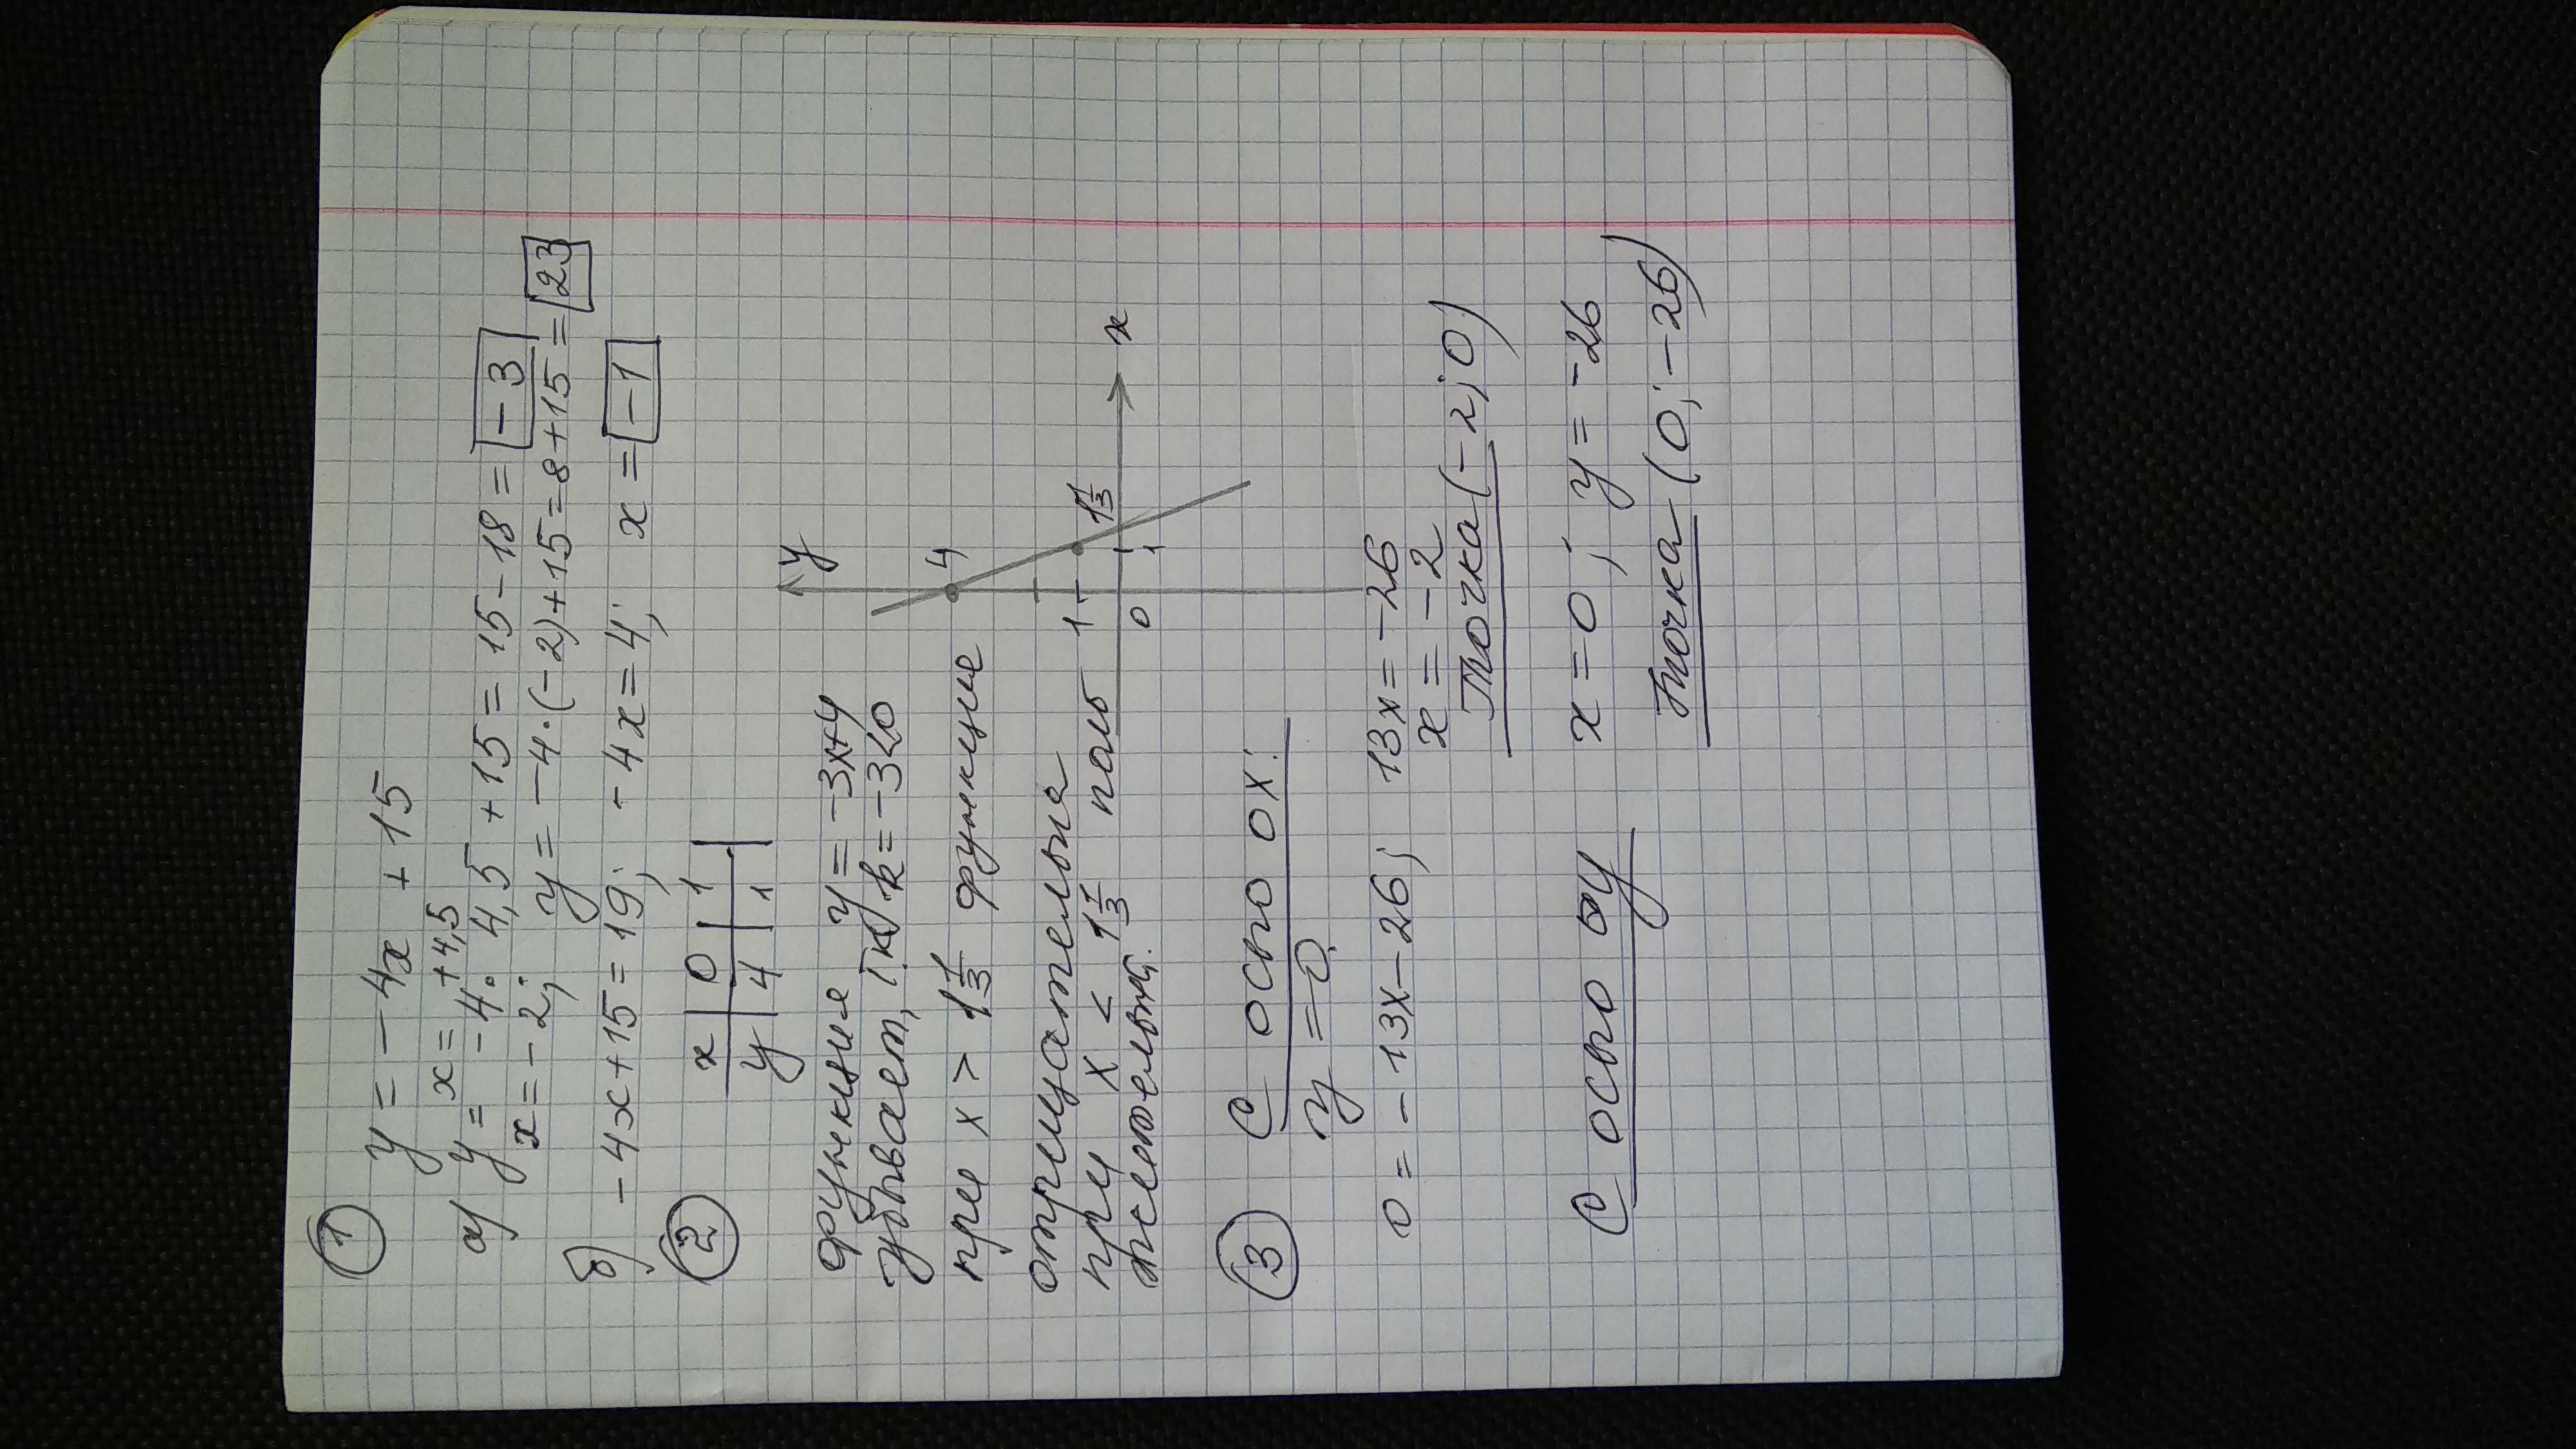 1 y = -4x + 15
x = +4,5
а) y = -4 · 4,5 + 15 = 15 - 18 = -3
x = -2; y = -4·(-2)+15 = 8+15 = 23
б) -4x+15 = 19; -4x = 4; x = -1
2 x | 0 | 1 |
y | 4 | 1
функция y = -3x+4
убывает, т.к k = -3<0
при x > 1 1/3 функция
отрицательна
при x < 1 1/3 поло
жительна.
y
4
1
1 1/3
0 1 x
3 С осью ох:
y = 0.
0 = -13x-26; 13x = -26
x = -2
Точка (-2; 0)
С осью оу x = 0; y = -26
Точка (0; -26)